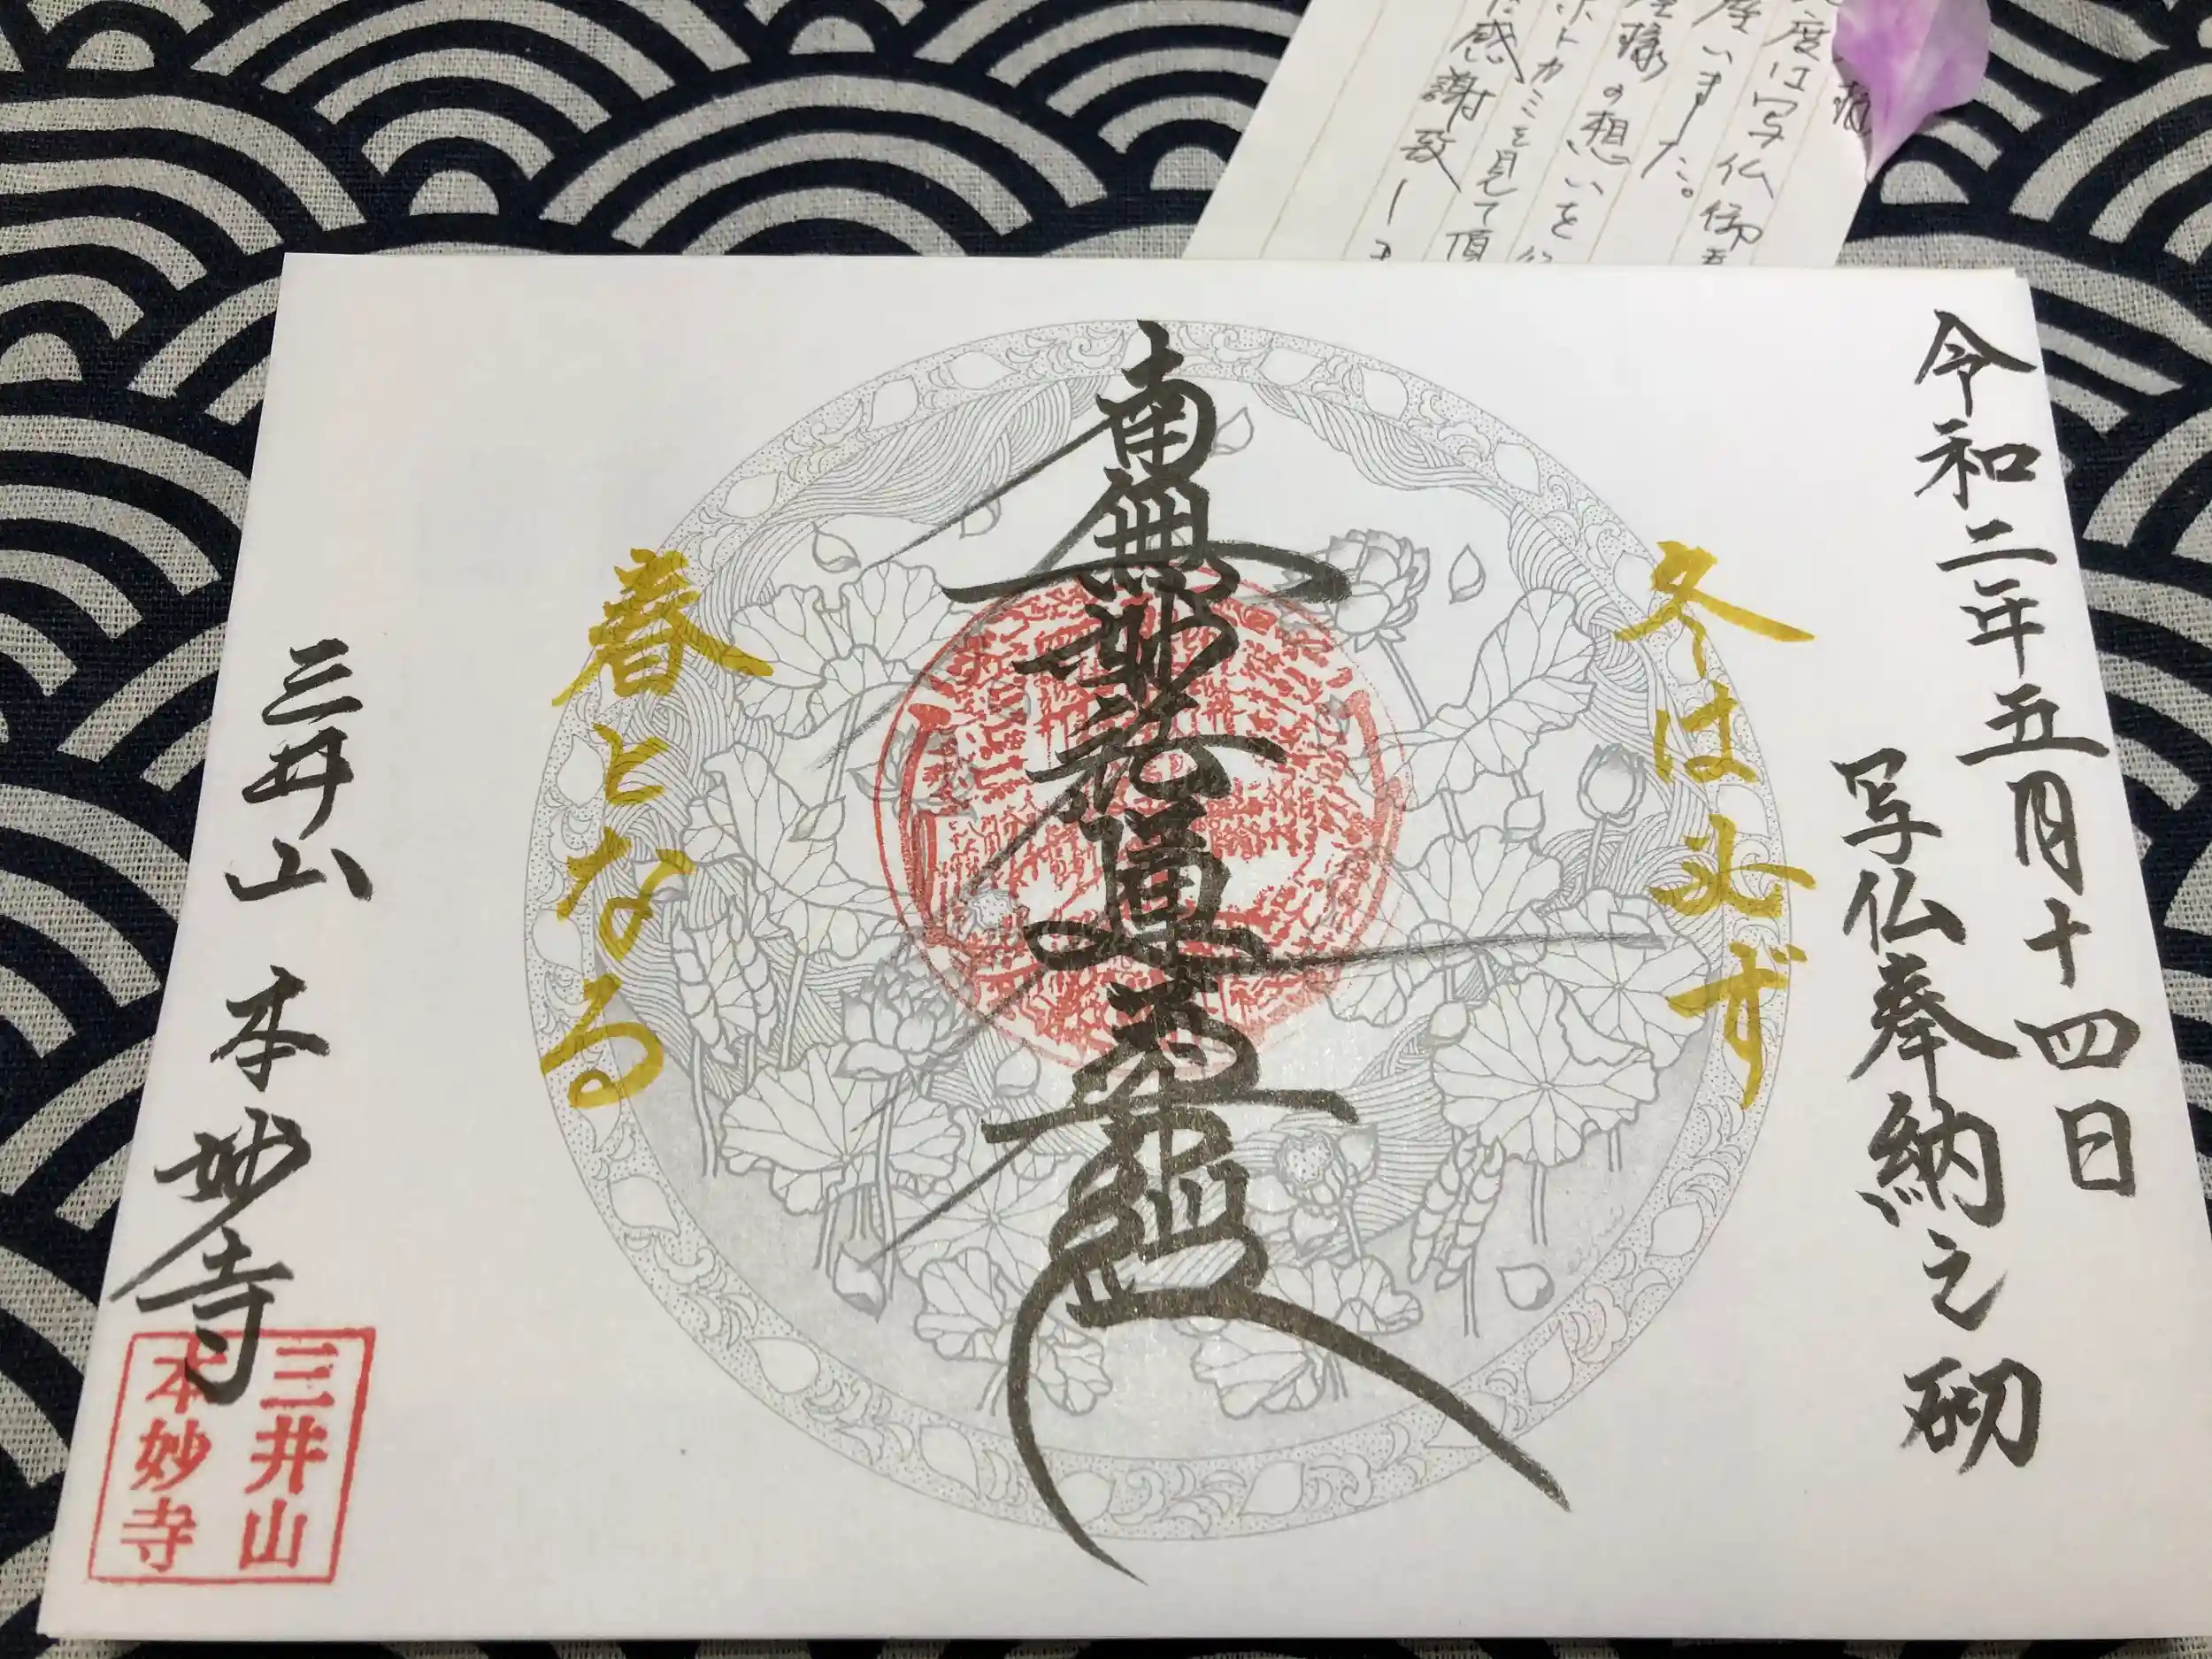 度は写仏御
座いました。
様の想いを
ホトカミを見て頂
感謝致しま
令和二年五月十四日
写仏奉納之砌
冬は必ず
南無妙法蓮華経
春となる
三井山 本妙寺
三井山
本妙寺